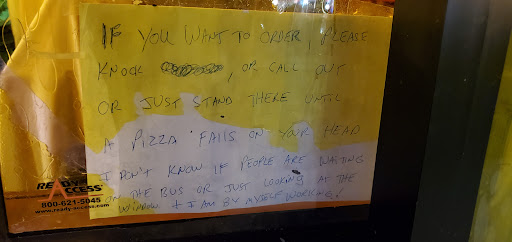 IF YOU WANT TO ORDER, PLEASE
KNOCK , OR CALL OUT
OR JUST STAND THERE UNTIL
A PIZZA FALLS ON YOUR HEAD
I DON'T KNOW IF PEOPLE ARE WAITING
ON THE BUS OR JUST LOOKING AT THE
WINDOW + I AM BY MYSELF WORKING!
READY ACCESS
800-621-5045
www.ready-access.com